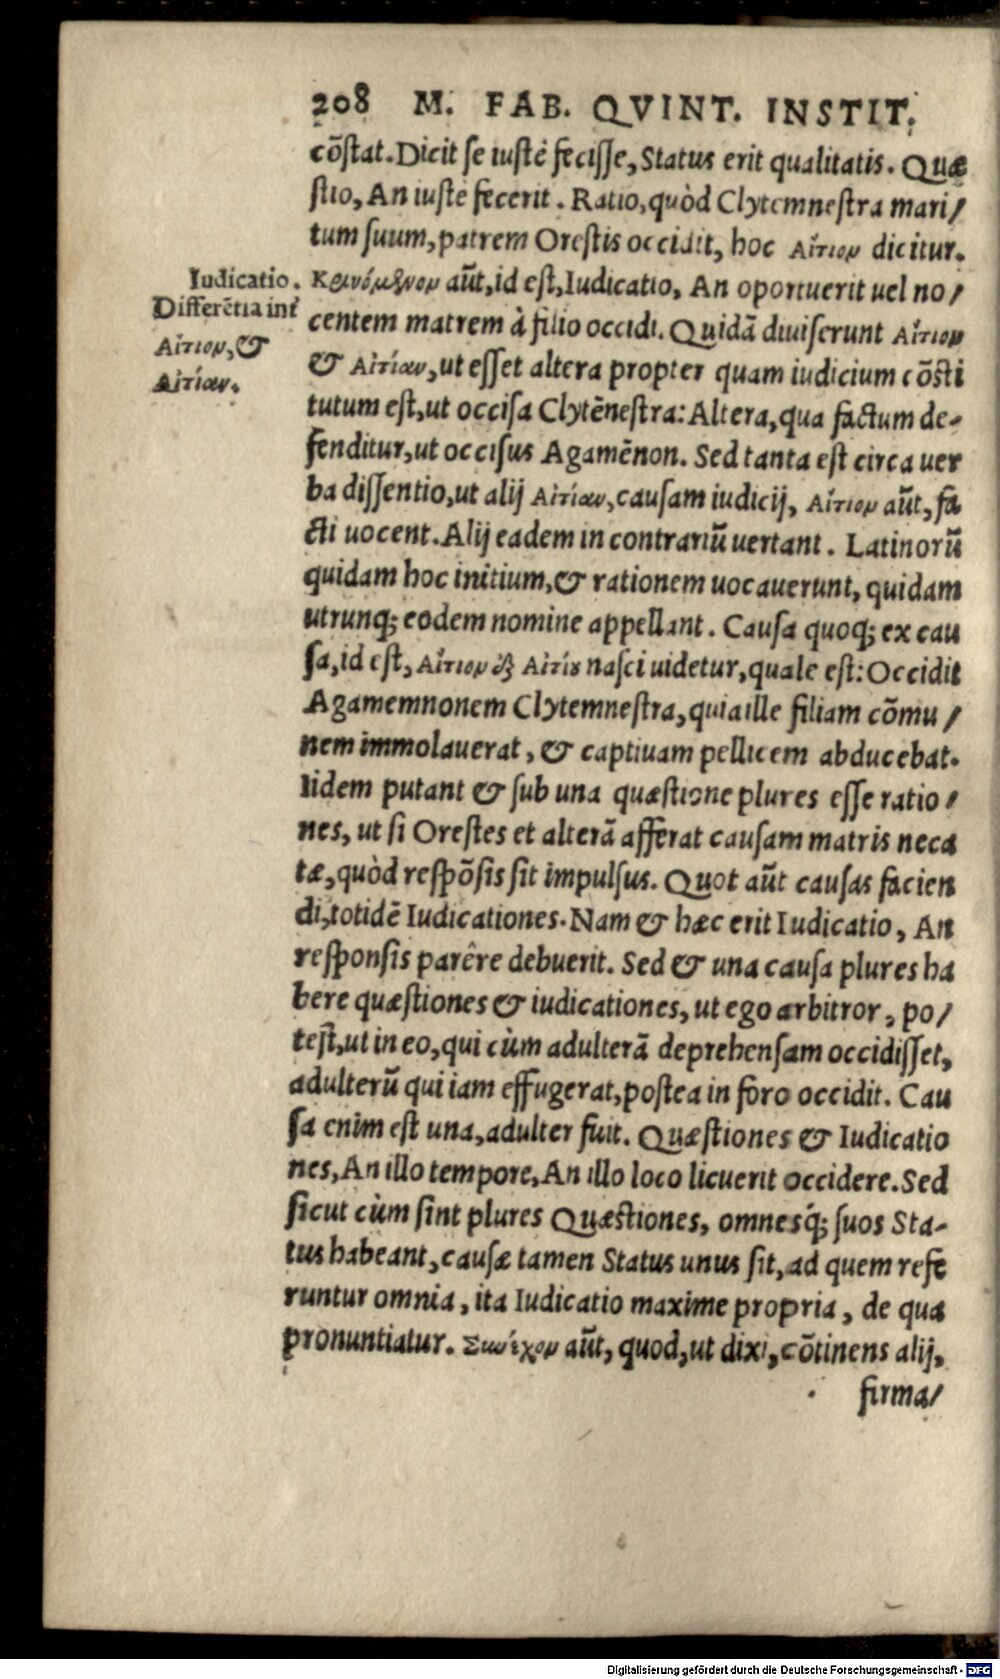 208 M. FAB. QVINT. INSTIT.
cõstat. Dicit se iustè fecisse, Status erit qualitatis. Quæ
stio, An iustè fecerit. Ratio, quòd Clytemnestra mari/
tum suum, patrem Orestis occidit, hoc Αἴτιον dicitur.
Iudicatio.
Differẽtia int̃
Αἴτιον, &
Αἰτίαν.
Κρινόμενον aũt, id est, Iudicatio, An oportuerit uel no/
centem matrem à filio occidi. Quidã diuiserunt Αἴτιον
& Αἰτίαν, ut esset altera propter quam iudicium cõsti
tutum est, ut occisa Clytẽnestra: Altera, qua factum de-
fenditur, ut occisus Agamẽnon. Sed tanta est circa uer
ba dissentio, ut alij Αἰτίαν, causam iudicij, Αἴτιον aũt, fa
cti uocent. Alij eadem in contrariũ uertant. Latinorũ
quidam hoc initium, & rationem uocauerunt, quidam
utrunq; eodem nomine appellant. Causa quoq; ex cau
sa, id est, Αἴτιον ἐξ Αἰτίου nasci uidetur, quale est: Occidit
Agamemnonem Clytemnestra, quia ille filiam cõmu/
nem immolauerat, & captiuam pellicem abducebat.
Iidem putant & sub una quæstione plures esse ratio/
nes, ut si Orestes et alterã afferat causam matris neca
tæ, quòd respõsis sit impulsus. Quot aũt causas facien
di, totidẽ Iudicationes. Nam & hæc erit Iudicatio, An
responsis parêre debuerit. Sed & una causa plures ha
bere quæstiones & iudicationes, ut ego arbitror, po/
test, ut in eo, qui cùm adulterã deprehensam occidisset,
adulterũ qui iam effugerat, postea in foro occidit. Cau
sa enim est una, adulter fuit. Quæstiones & Iudicatio
nes, An illo tempore, An illo loco licuerit occidere. Sed
sicut cùm sint plures Quæstiones, omnesq́; suos Sta-
tus habeant, causæ tamen Status unus sit, ad quem refe
runtur omnia, ita Iudicatio maxime propria, de qua
pronuntiatur. Συνέχον aũt, quod, ut dixi, cõtinens alij,
firma/
Digitalisierung gefördert durch die Deutsche Forschungsgemeinschaft - DFG